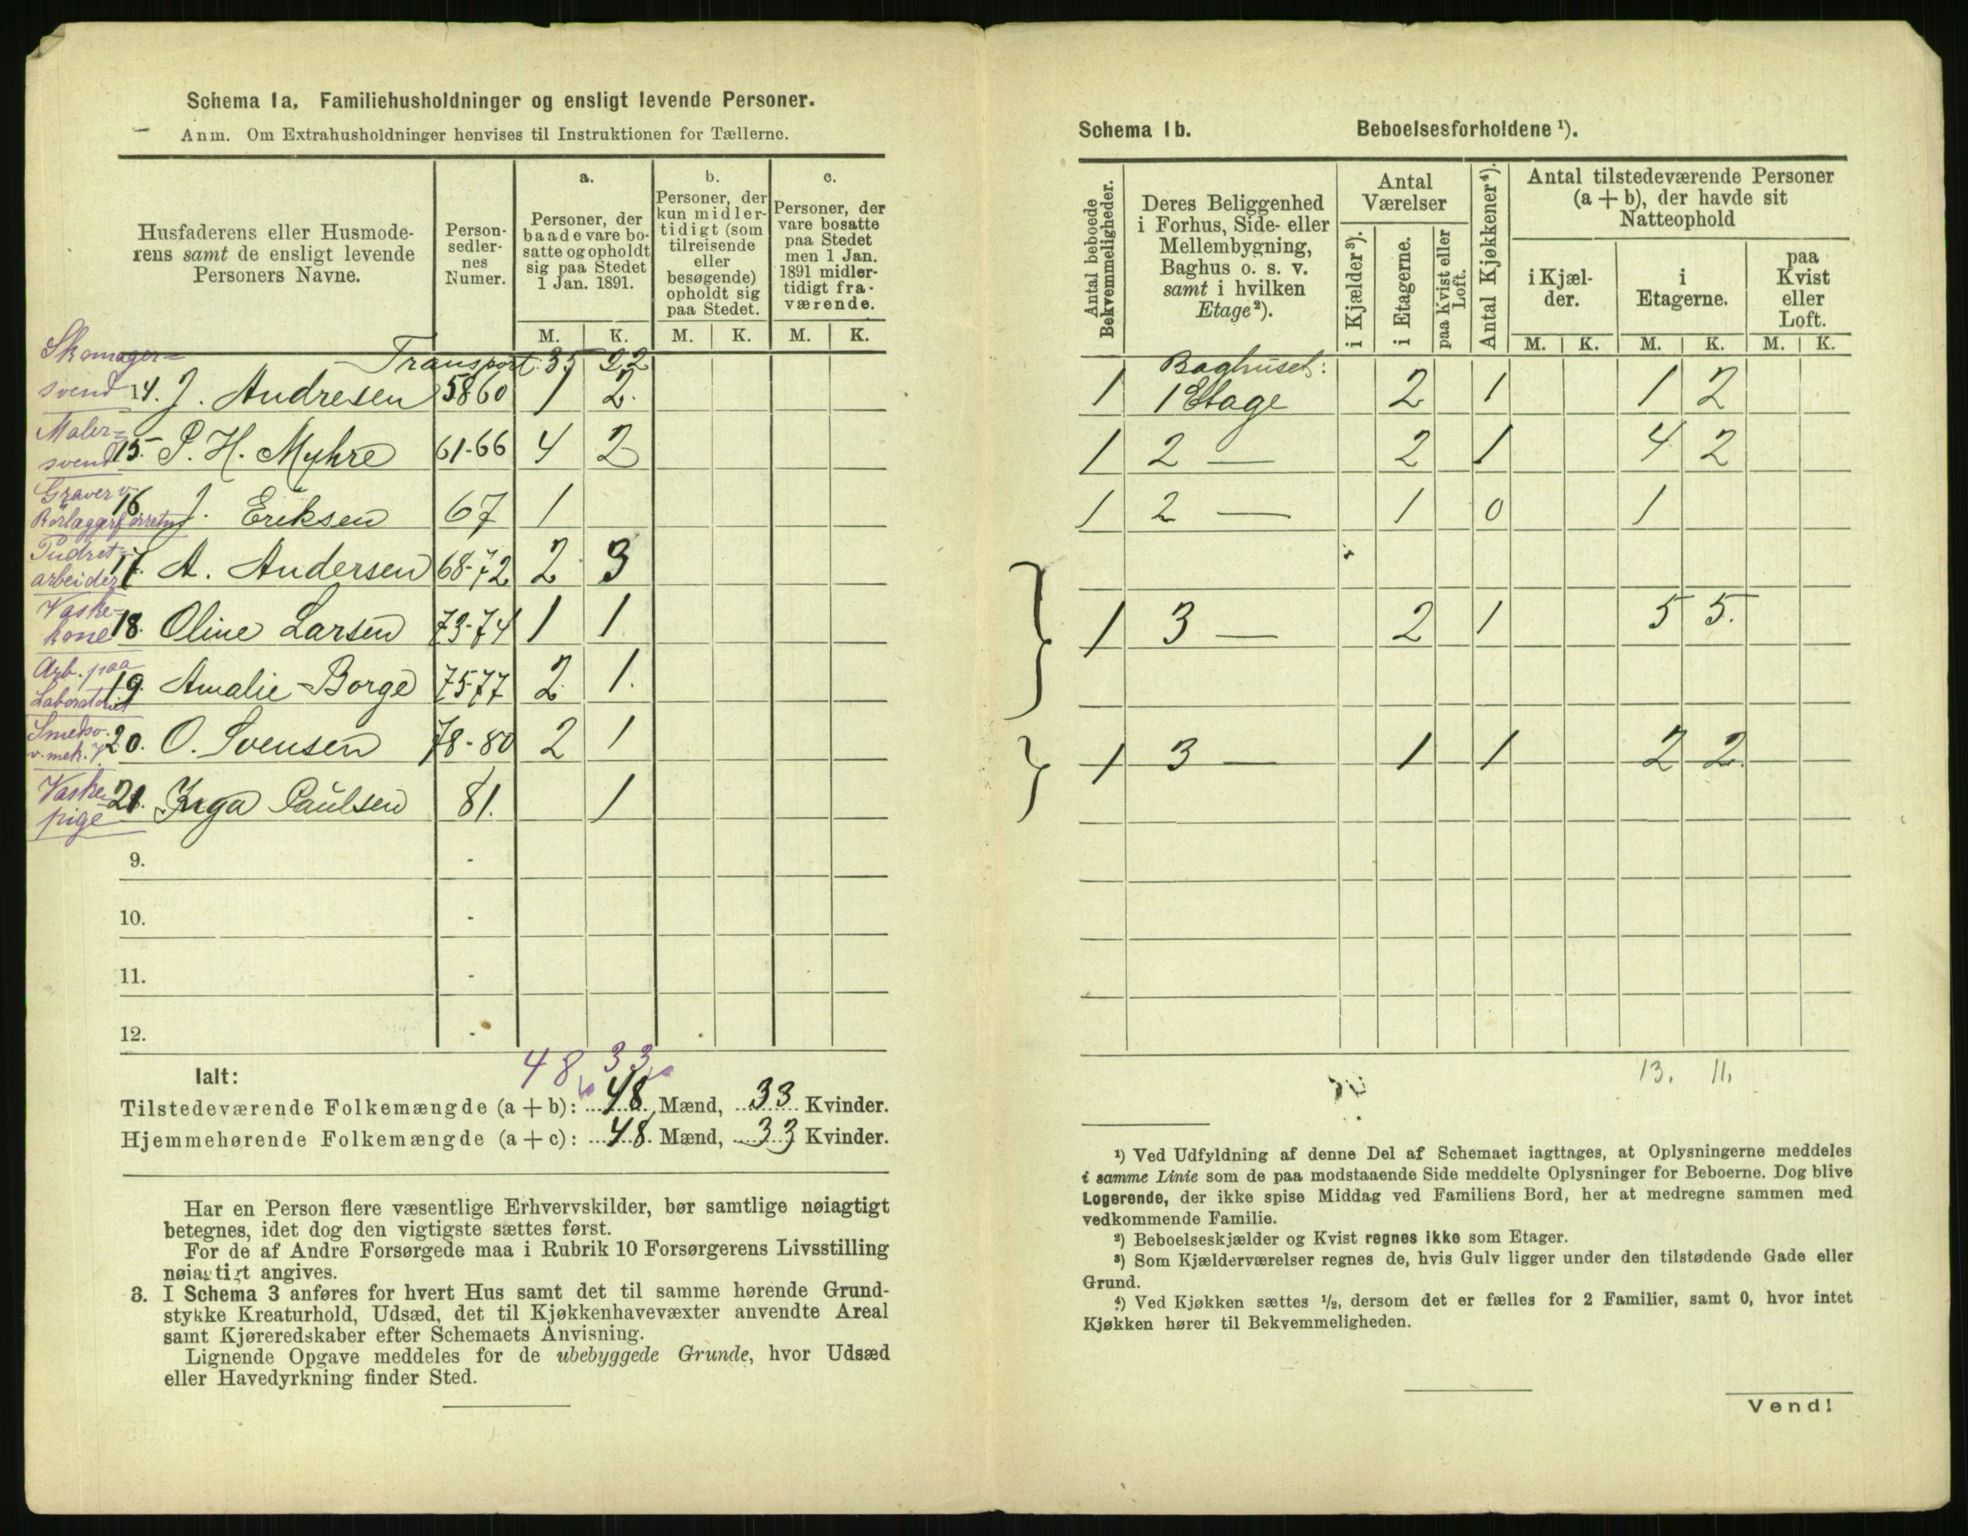 Schema 1a. Familiehusholdninger og ensligt levende Personer.
Anm. Om Extrahusholdninger henvises til Instruktionen for Tællerne.
Husfaderens eller Husmode-
rens samt de ensligt levende
Personers Navne.
Person-
sedler-
nes
Numer.
a.
Personer, der
baade vare bo-
satte og opholdt
sig paa Stedet
1 Jan. 1891.
b.
Personer, der
kun midler-
tidigt (som
tilreisende
eller
besøgende)
opholdt sig
paa Stedet.
c.
Personer, der
vare bosatte
paa Stedet
men 1 Jan.
1891 midler-
tidigt fra-
værende.
M. K. M. K. M. K.
Transport 35 22
Skomager-
svend 14. J. Andresen 58 60 1 2.
Maler-
svend 15. P. H. Myhre 61-66 4 2
Graver v.
Rørlæggerforretn 16 J. Eriksen 67 1
Pudret-
arbeider 17. A. Andersen 68-72 2 3
Vaske-
kone 18. Oline Larsen 73-74 1 1
Arb. paa
Laboratoriet 19. Amalie Borge 75-77 2 1.
Smedsv.
v. mek. 20. O. Svensen 78-80 2 1
Vaske-
pige 21. Inga Paulsen 81. 1
9. -
10. -
11. -
12. -
48 33
Ialt:
Tilstedeværende Folkemængde (a + b): 48 Mænd, 33 Kvinder.
Hjemmehørende Folkemængde (a + c): 48. Mænd, 33 Kvinder.
Har en Person flere væsentlige Erhvervskilder, bør samtlige nøiagtigt
betegnes, idet dog den vigtigste sættes først.
For de af Andre Forsørgede maa i Rubrik 10 Forsørgerens Livsstilling
nøiagtigt angives.
3. I Schema 3 anføres for hvert Hus samt det til samme hørende Grund-
stykke Kreaturhold, Udsæd, det til Kjøkkenhavevæxter anvendte Areal
samt Kjøreredskaber efter Schemaets Anvisning.
Lignende Opgave meddeles for de ubebyggede Grunde, hvor Udsæd
eller Havedyrkning finder Sted.
Schema 1b. Beboelsesforholdene ¹).
Antal beboede
Bekvemmeligheder.
Deres Beliggenhed
i Forhus, Side- eller
Mellembygning,
Baghus o. s. v.
samt i hvilken
Etage²).
Antal
Værelser
i Kjælder³).
i Etagerne.
paa Kvist eller
Loft.
Antal Kjøkkener⁴).
Antal tilstedeværende Personer
(a + b), der havde sit
Natteophold
i Kjæl-
der.
i
Etagerne.
paa
Kvist
eller
Loft.
M. K. M. K. M. K.
Baghuset:
1 1 Etage 2 1 1 2
1 2 — 2 1 4 2
1 2 — 1 0 1
1 3 — 2 1 5 5.
1 3 — 1 1 2 2
13. 11.
¹) Ved Udfyldning af denne Del af Schemaet iagttages, at Oplysningerne meddeles
i samme Linie som de paa modstaaende Side meddelte Oplysninger for Beboerne. Dog blive
Logerende, der ikke spise Middag ved Familiens Bord, her at medregne sammen med
vedkommende Familie.
²) Beboelseskjælder og Kvist regnes ikke som Etager.
³) Som Kjælderværelser regnes de, hvis Gulv ligger under den tilstødende Gade eller
Grund.
⁴) Ved Kjøkken sættes ½, dersom det er fælles for 2 Familier, samt 0, hvor intet
Kjøkken hører til Bekvemmeligheden.
Vend!